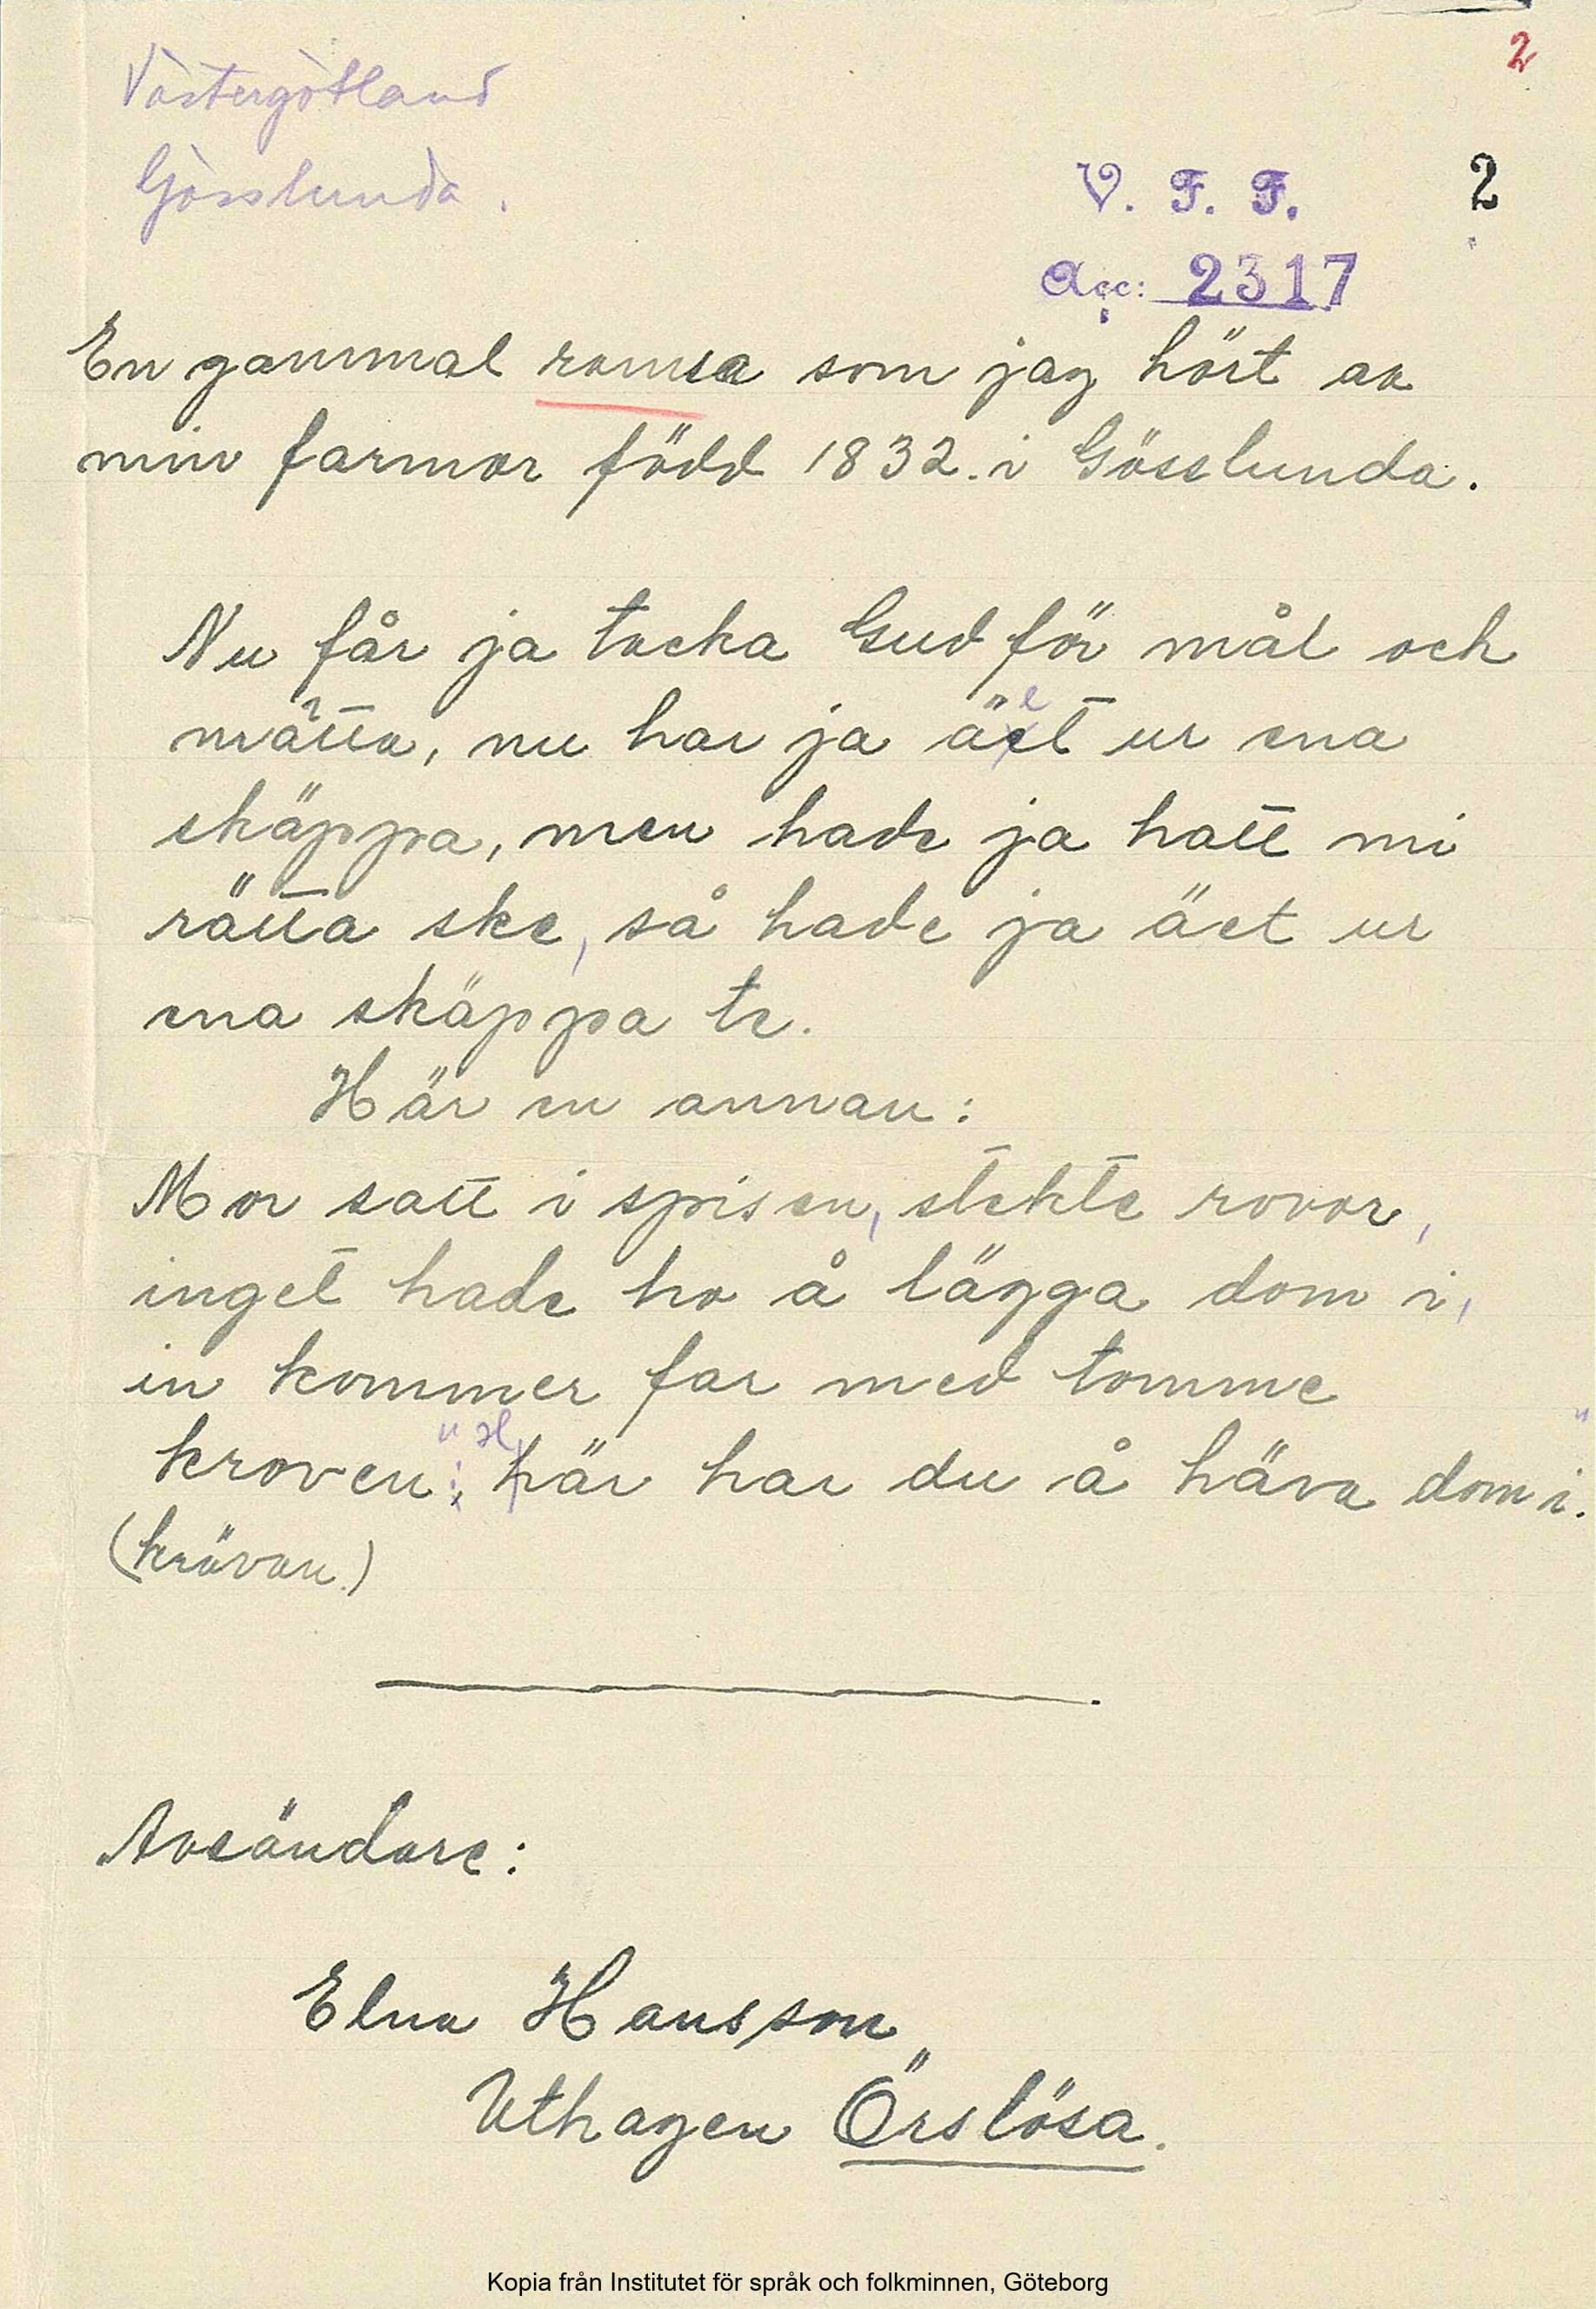 2
Västergötland
Gösslunda.
V. F. F. 2
Acc: 2317
En gammal ramsa som jag hört av
min farmor född 1832. i Gösslunda.
Nu får ja tacka Gud för mål och
mätta, nu har ja äet ur ena
skäppa, men hade ja hatt mi
rätta ske, så hade ja äet ur
ena skäppa te.
Här en annan:
Mor satt i spisen, stekte rovor,
inget hade ho å lägga dom i,
in kommer far med tomme
kroven: "Här har du å häva dom i."
(krävan.)
Avsändare:
Elna Hansson
Uthagen Örslösa.
Kopia från Institutet för språk och folkminnen, Göteborg